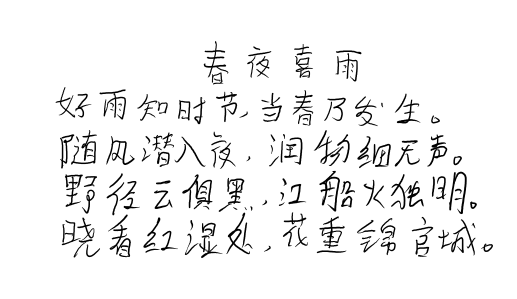 春夜喜雨
好雨知时节,当春乃发生。
随风潜入夜,润物细无声。
野径云俱黑,江船火独明。
晓看红湿处,花重锦官城。